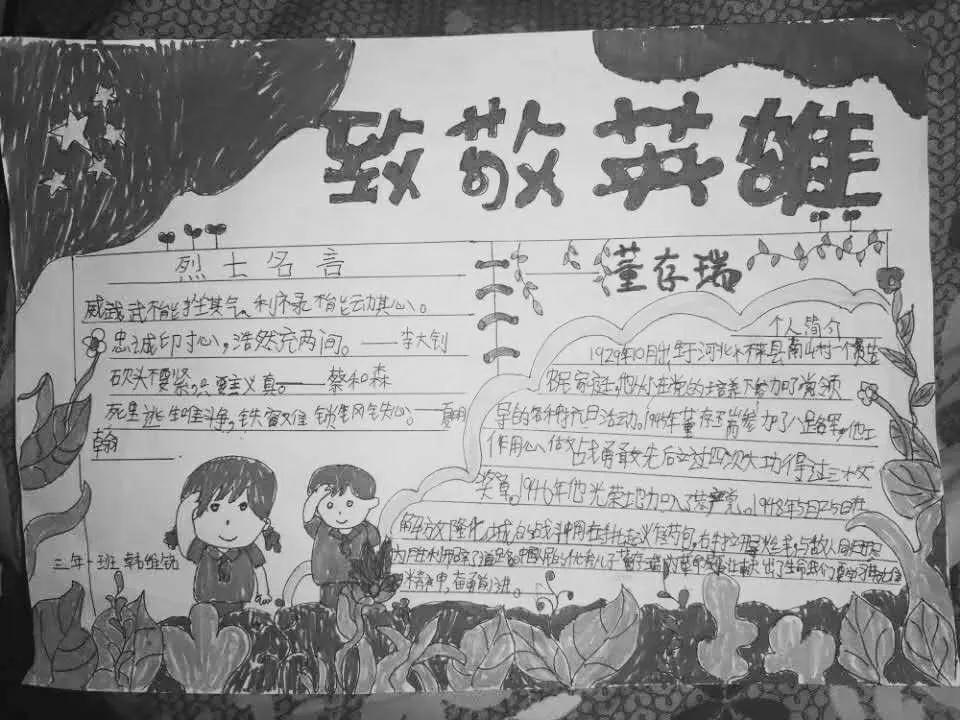 致敬英雄
烈士名言
威武不能挫其气、利禄不能动其心。
忠诚印寸心，浩然充两间。——李大钊
砍头不要紧，只要主义真。——蔡和森
死里逃生唯斗争，铁窗难锁钢铁心。——夏明
翰
三年一班 韩维
董存瑞
个人简介
1929年10月出生于河北 县南山村一个贫
农家庭，他从小在党的培养下参加了党领
导的各种抗日活动。1945年董存瑞参加了八路军，他工
作用心，作战勇敢先后立过四次大功得过三次
奖章。1946年他光荣地加入 共产党。1948年5月25日在
解放隆化城的战斗中用 托起 炸药包，右手 导火
为胜利开辟了道路 的优秀儿子董存瑞为革命 献出了生命我们要学习
精神，奋勇前进。